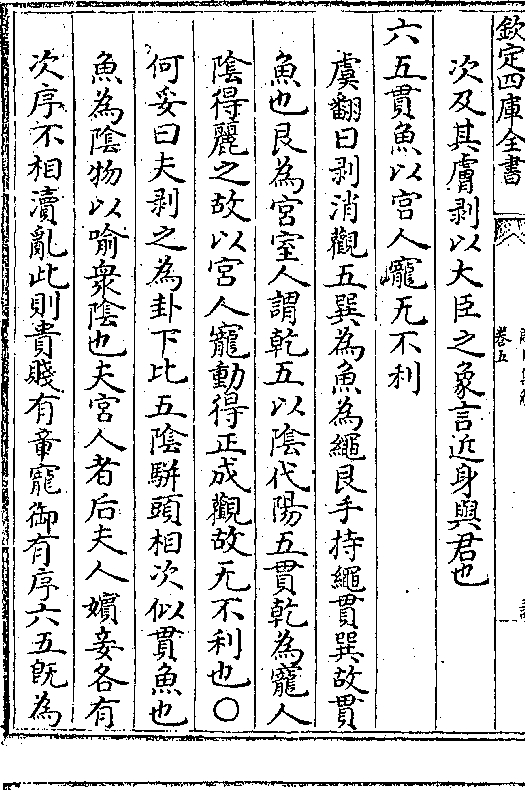 欽定四庫全書
卷五
次及其膚剥以大臣之象言近身與君也
六五貫魚以宫人寵无不利
虞翻曰剥消觀五巽為魚為繩艮手持繩貫巽故貫
魚也艮為宮室人謂乾五以陰代陽五貫乾為寵人
陰得麗之故以宮人寵動得正成觀故无不利也〇
何妥曰夫剥之為卦下比五陰駢頭相次似貫魚也
魚為陰物以喻衆陰也夫宮人者后夫人嬪妾各有
次序不相瀆亂此則貴賤有章寵御有序六五既為